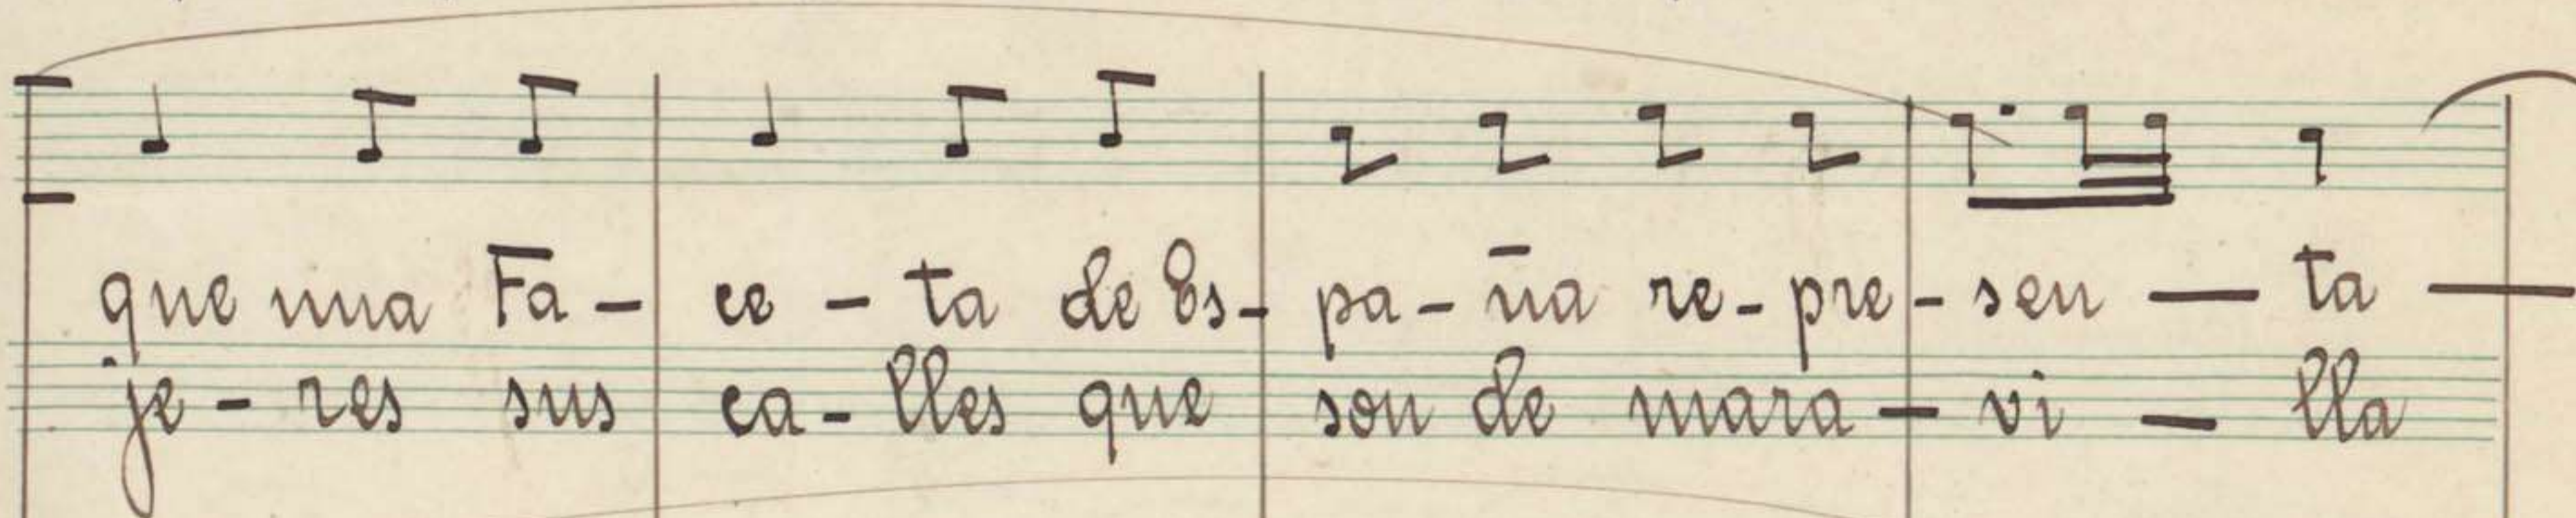 que una Fa- ce - ta de Es- pa - ña re - pre - sen — ta —
je - res sus ca - lles que son de mara — vi — lla